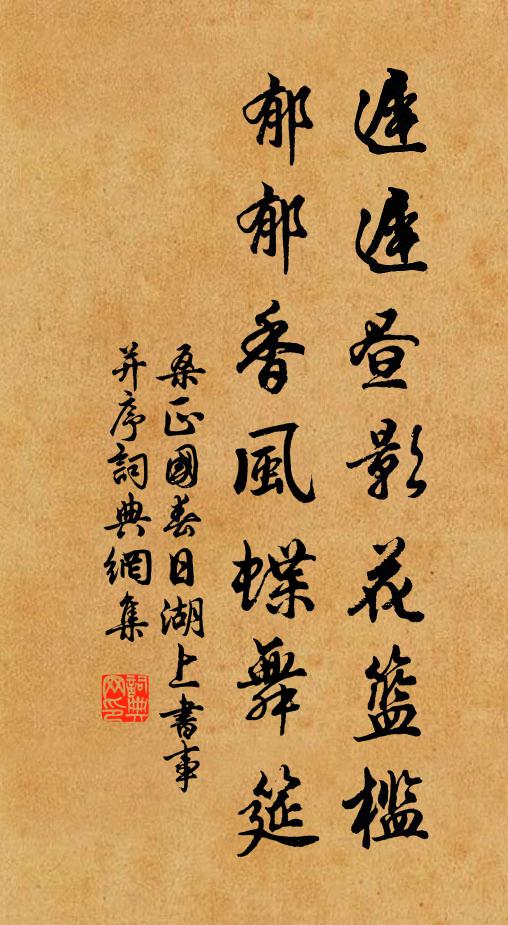 遲遲昼影花籃檻
郁郁香風蝶舞筵
桑正國春日湖上書事
并序詞典網集
詞典网印